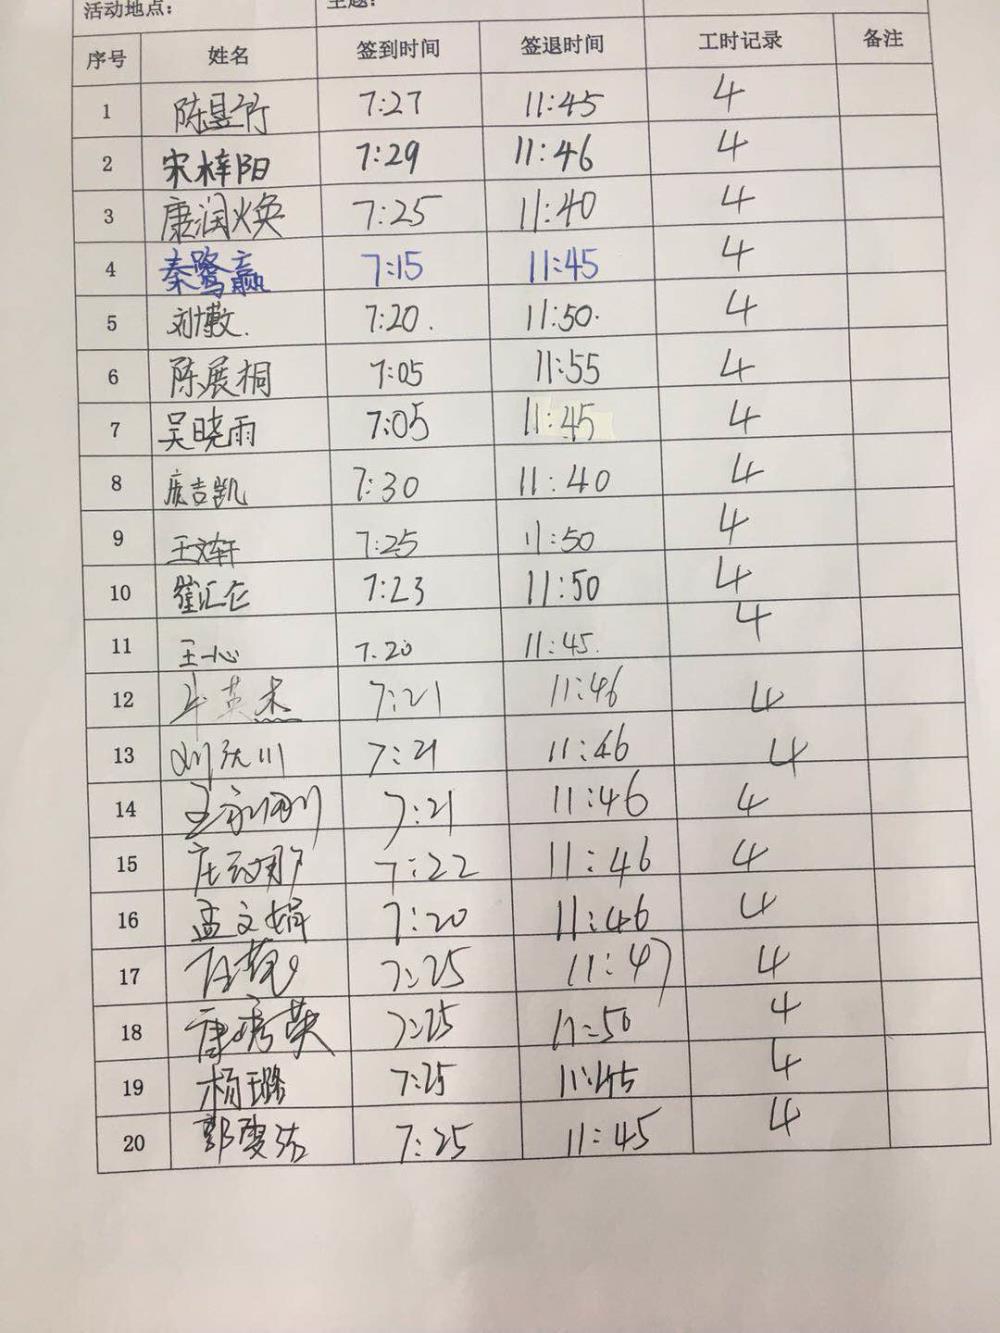 活动地点： 主题：
序号 姓名 签到时间 签退时间 工时记录 备注
1 陈昱竹 7:27 11:45 4
2 宋梓阳 7:29 11:46 4
3 康润焕 7:25 11:40 4
4 秦鹭赢 7:15 11:45 4
5 刘博敩. 7:20. 11:50. 4
6 陈展桐 7:05 11:55 4
7 吴晓雨 7:05 11:45 4
8 庞吉凯 7:30 11:40 4
9 王文轩 7:25 11:50 4
10 崔汇仑 7:23 11:50 4
11 王一心 7.20 11:45. 4
12 英杰 7:21 11:46 4
13 刘庆川 7:21 11:46 4
14 王永刚 7:21 11:46 4
15 7:22 11:46 4
16 孟文娟 7:20 11:46 4
17 7:25 11:47 4
18 康秀英 7:25 11:50 4
19 杨璐 7:25 11:45 4
20 郭雯洁 7:25 11:45 4